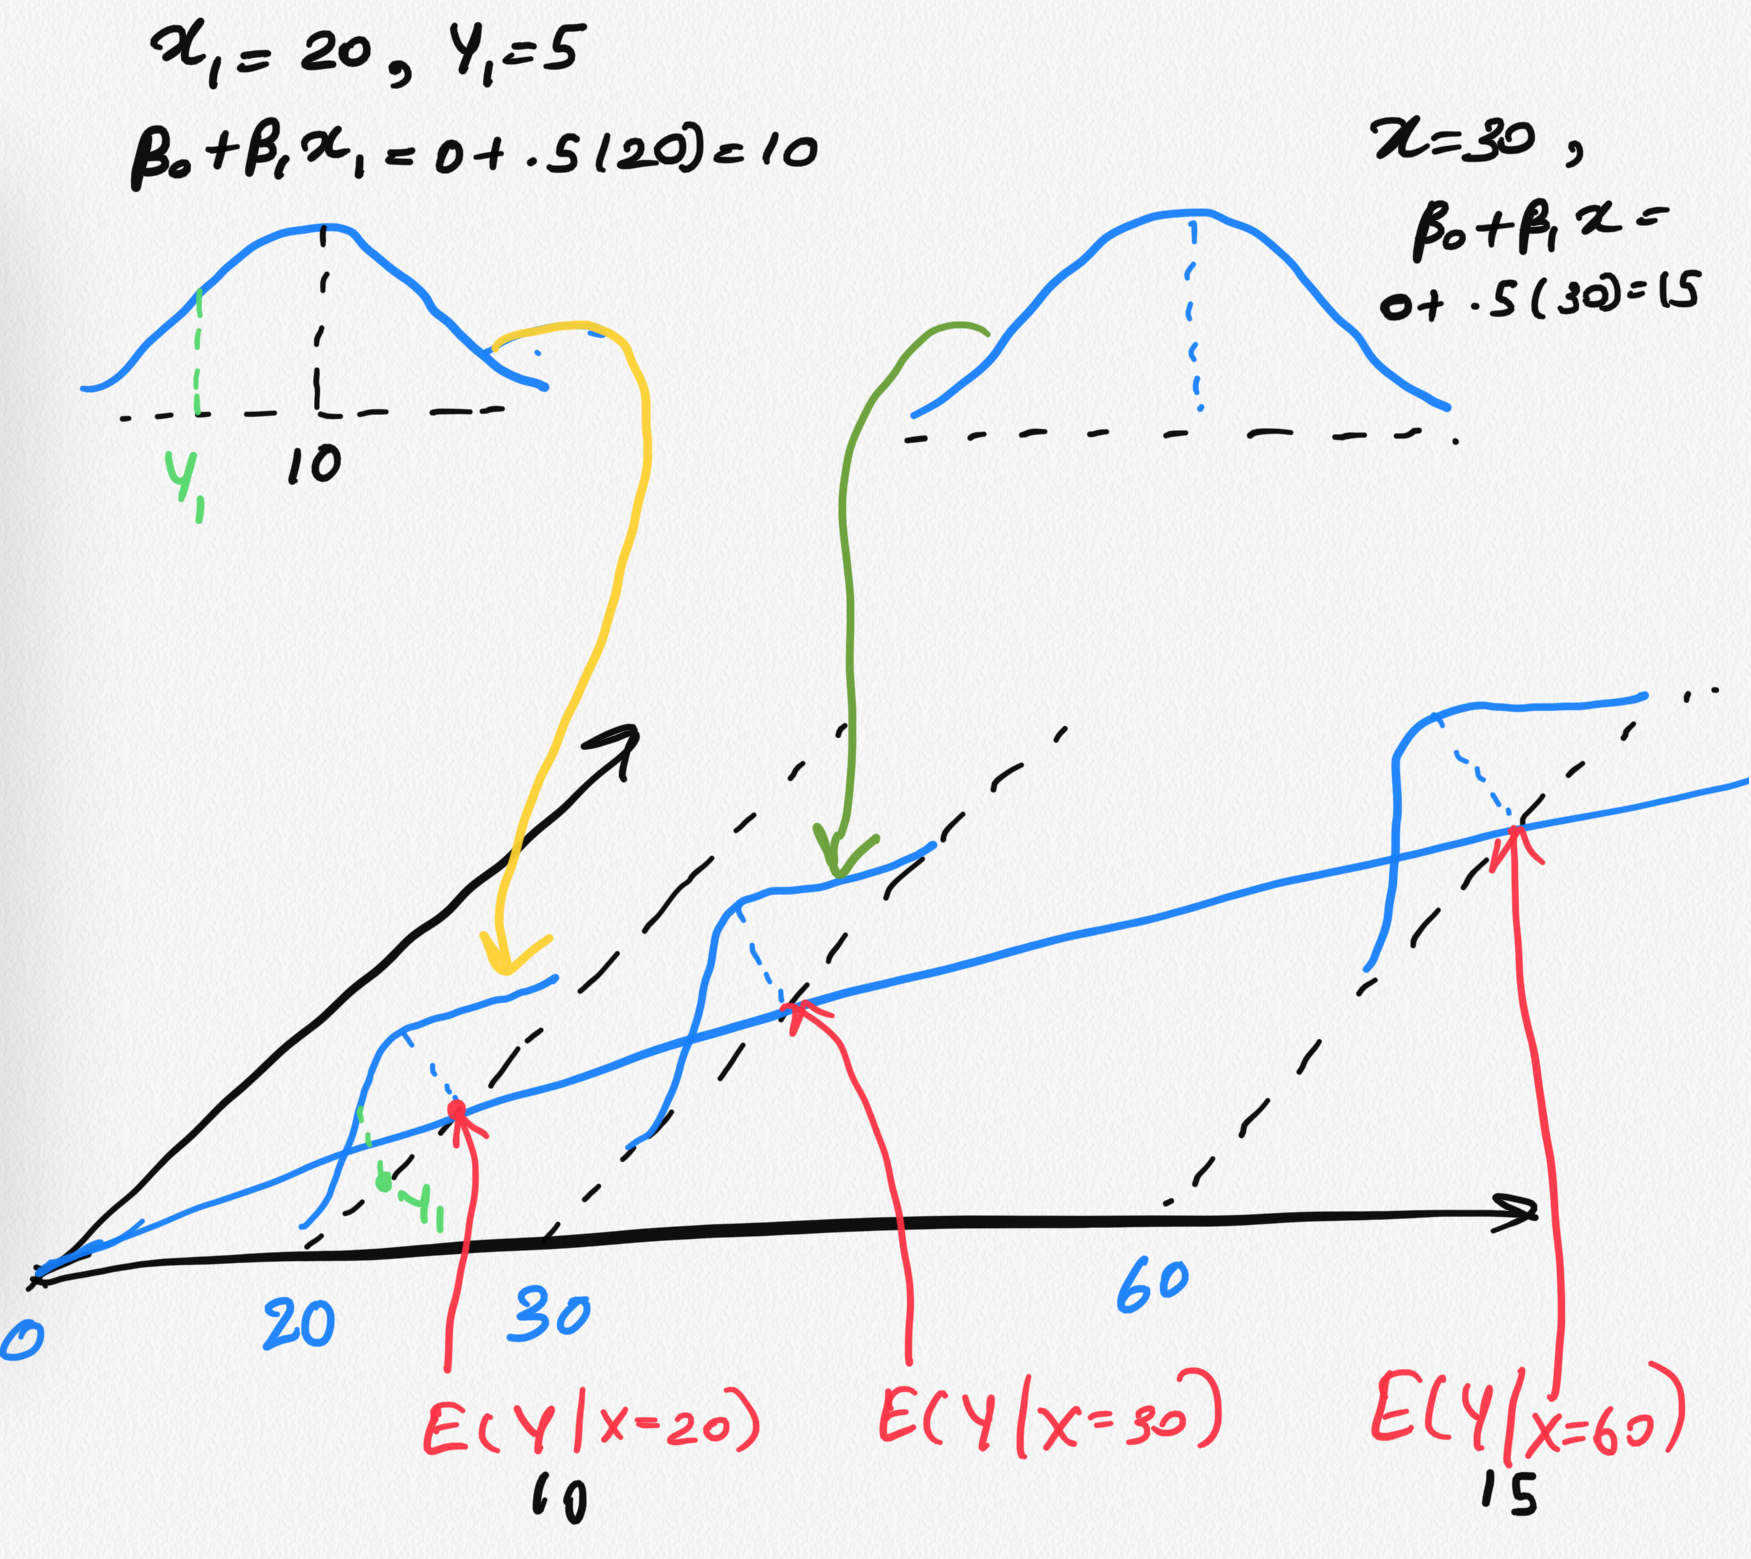 x₁ = 20, Y₁ = 5
β₀ + β₁ x₁ = 0 + .5(20) = 10
x = 30,
β₀ + β₁ x =
0 + .5(30) = 15
Y₁
10
Y₁
0
20
30
60
E(Y/X=20)
E(Y/X=30)
E(Y/X=60)
10
15